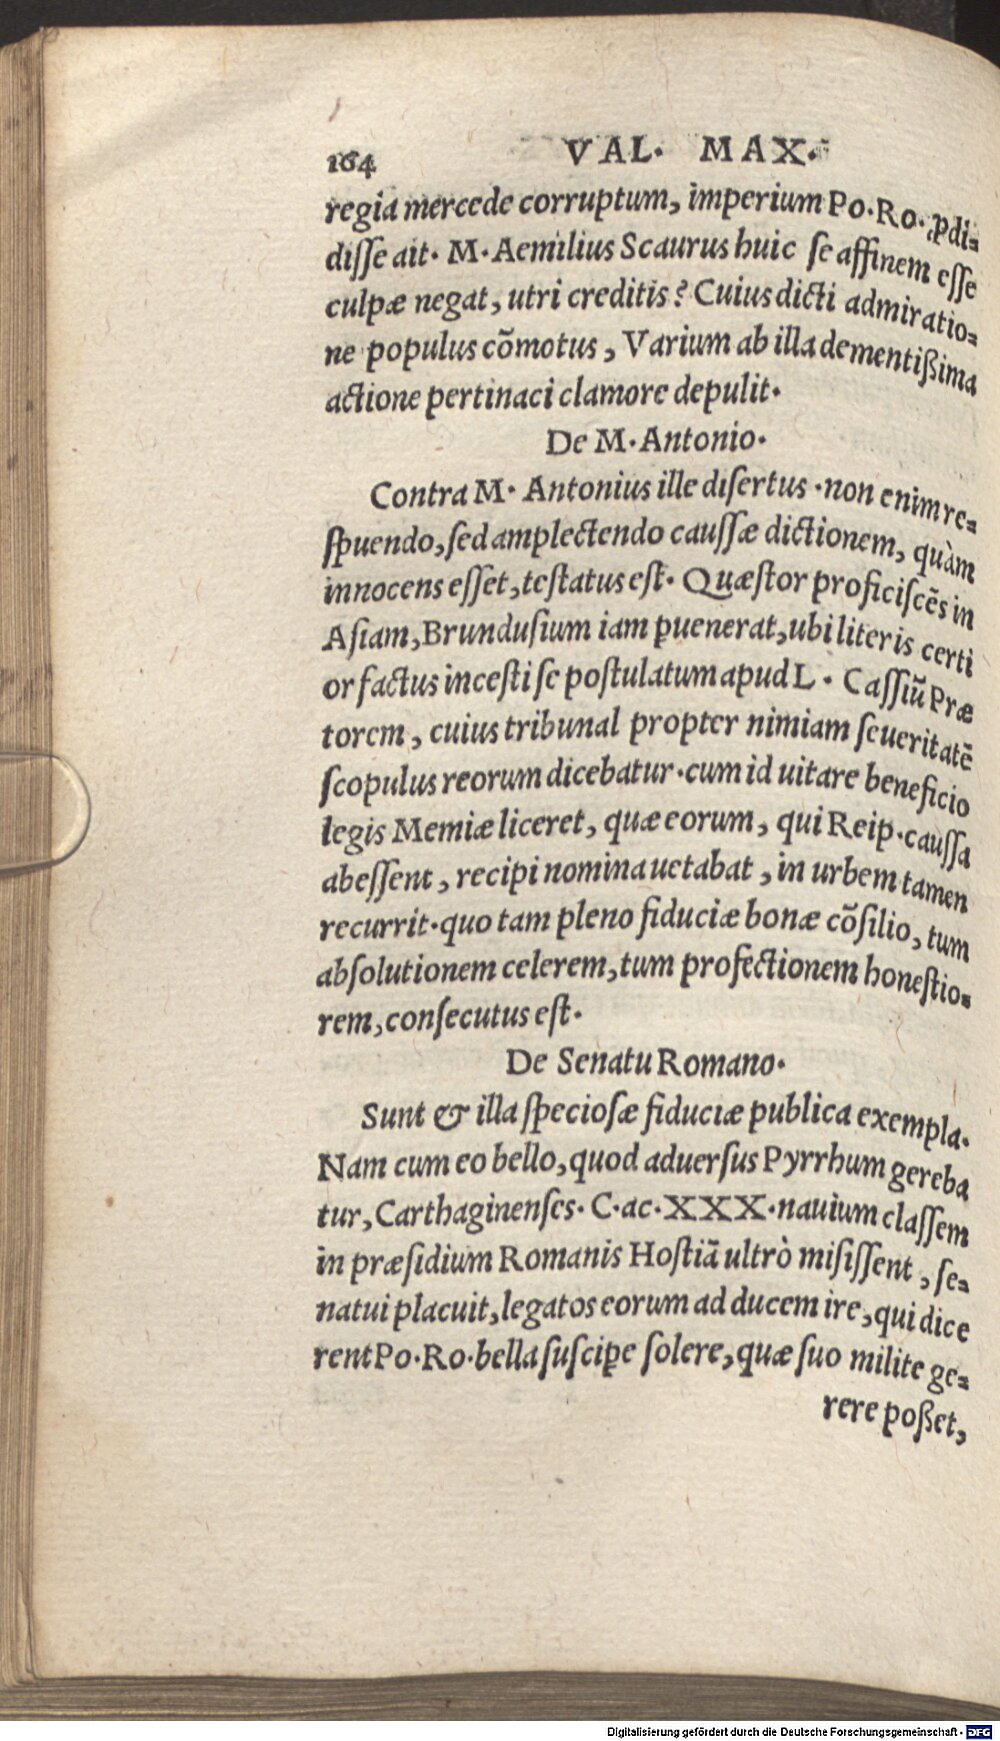 164 VAL. MAX.
regia mercede corruptum, imperium Po.Ro. ꝓdi-
diſſe ait. M. Aemilius Scaurus huic ſe affinem eſſe
culpæ negat, utri creditis? Cuius dicti admiratio-
ne populus cõmotus, Varium ab illa dementißima
actione pertinaci clamore depulit.
De M. Antonio.
Contra M. Antonius ille diſertus .non enim re-
ſpuendo, ſed amplectendo cauſſæ dictionem, quàm
innocens eſſet, teſtatus eſt. Quæſtor proficiſcẽs in
Aſiam, Brunduſium iam ꝑuenerat, ubi literis certi
or factus inceſti ſe poſtulatum apud L. Caſſiũ Præ
torem, cuius tribunal propter nimiam ſeueritatẽ
ſcopulus reorum dicebatur. cum id uitare beneficio
legis Memiæ liceret, quæ eorum, qui Reip. cauſſa
abeſſent, recipi nomina uetabat, in urbem tamen
recurrit. quo tam pleno fiduciæ bonæ cõſilio, tum
abſolutionem celerem, tum profectionem honeſtio-
rem, conſecutus eſt.
De Senatu Romano.
Sunt & illa ſpecioſæ fiduciæ publica exempla.
Nam cum eo bello, quod aduerſus Pyrrhum gereba
tur, Carthaginenſes. C. ac. XXX. nauium claſſem
in præſidium Romanis Hoſtiã ultrò miſiſſent, ſe-
natui placuit, legatos eorum ad ducem ire, qui dice
rent Po. Ro. bella ſuſciꝑe ſolere, quæ ſuo milite ge-
rere poßet,
Digitalisierung gefördert durch die Deutsche Forschungsgemeinschaft - DFG